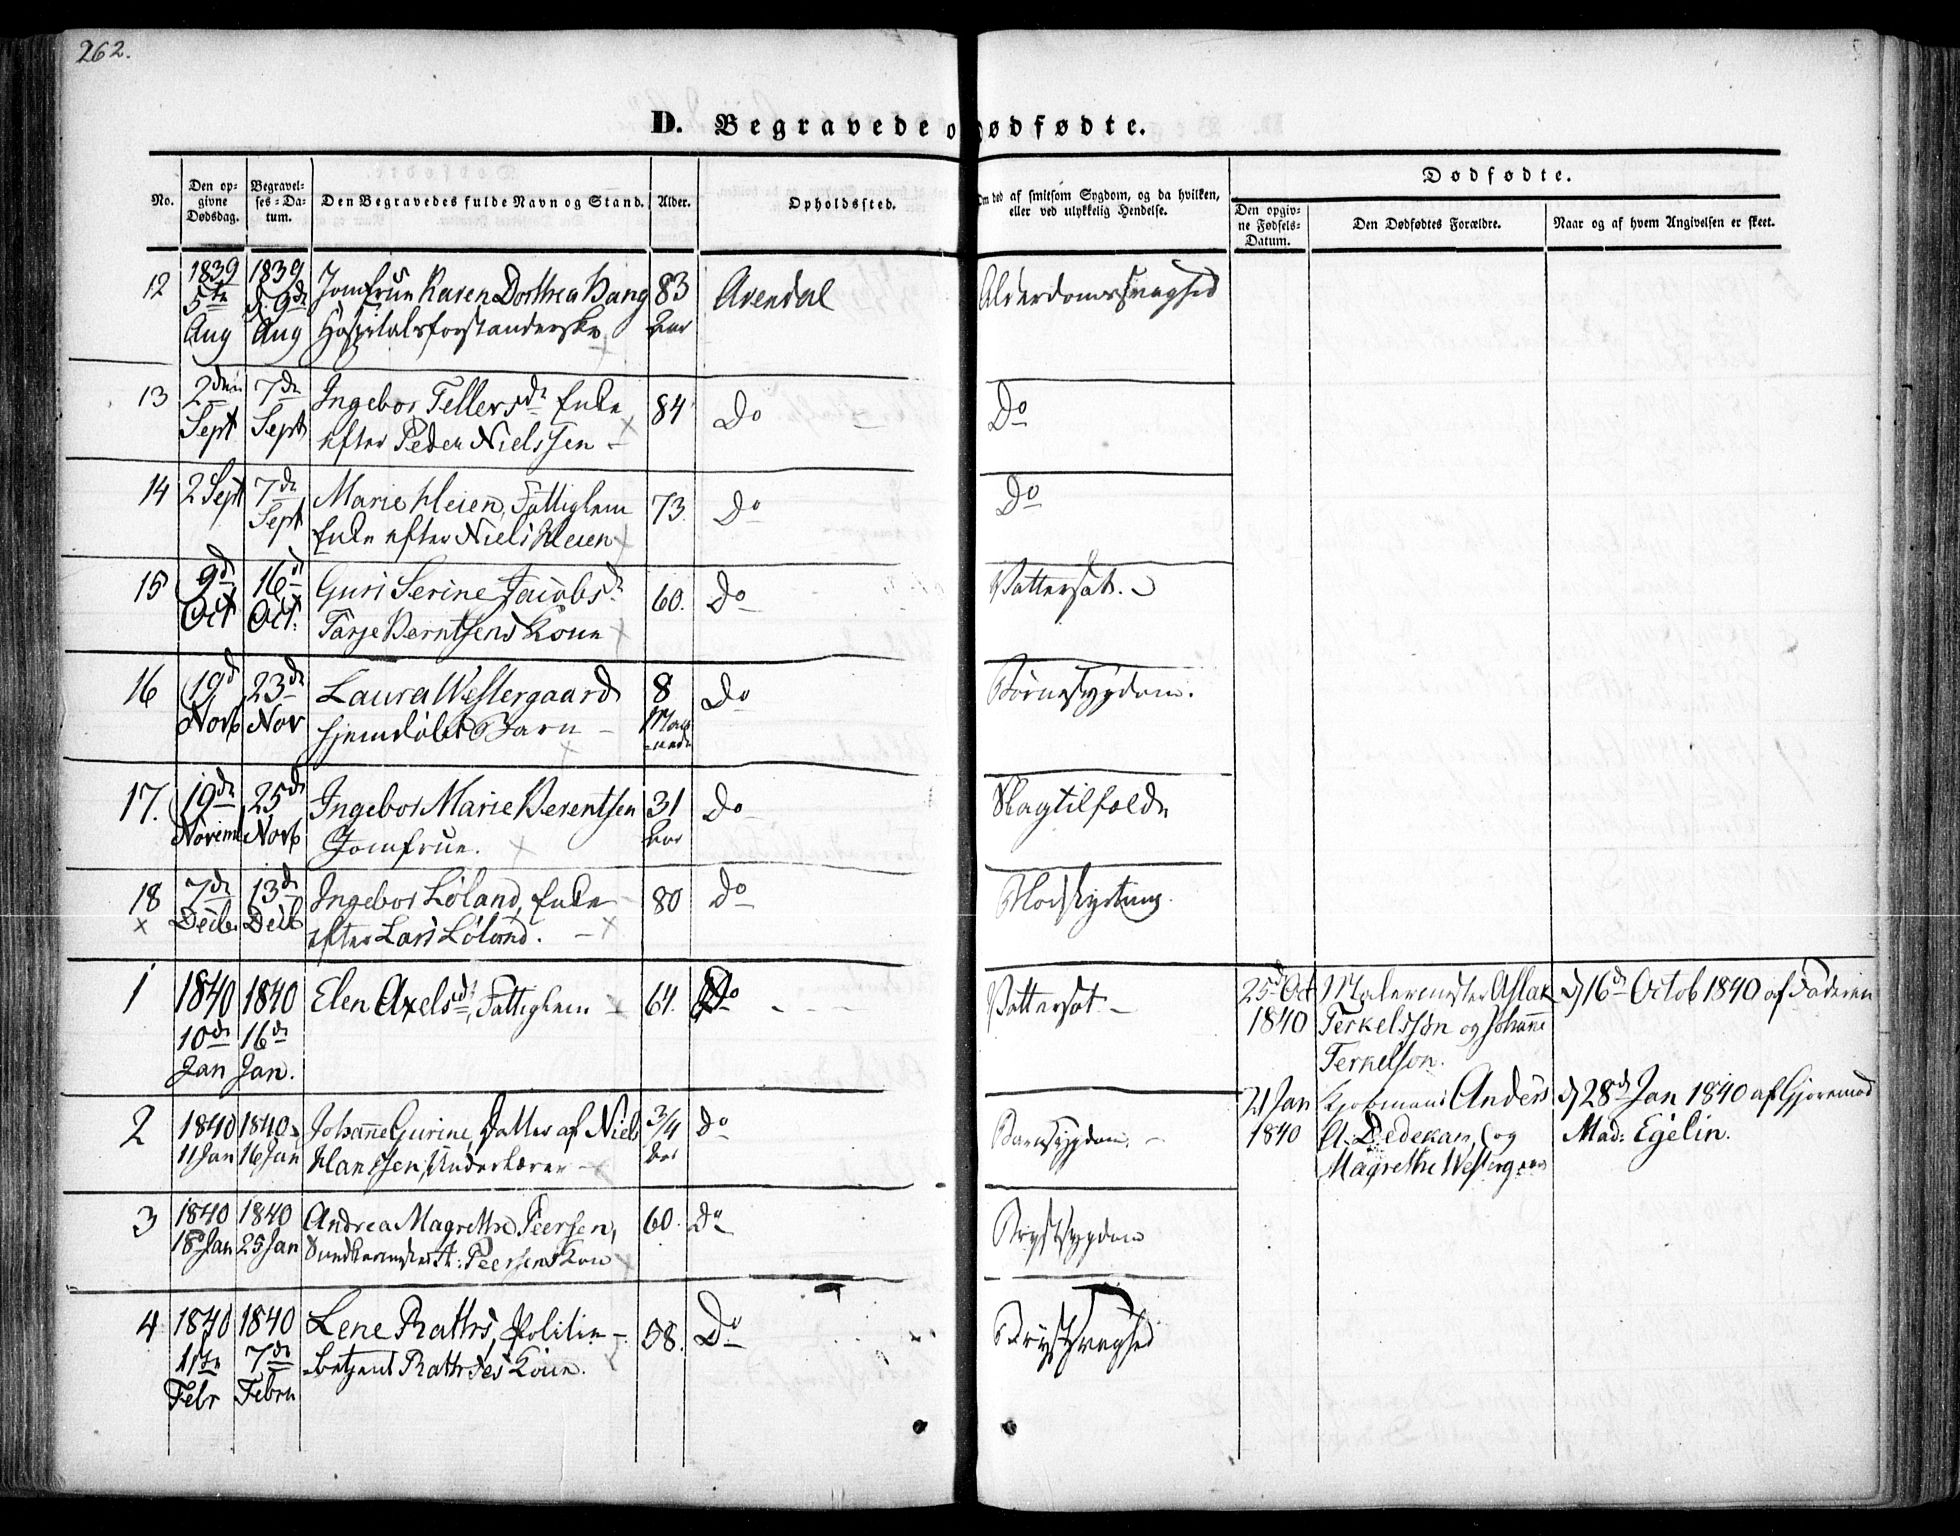 262.
D. Begravede o
dødfødte.
No.
Den opgivne Dødsdag.
Begravelses-Datum.
Den Begravedes fulde Navn og Stand.
Alder.
Opholdssted.
Om død af smitsom Sygdom, og da hvilken, eller ved ulykkelig Hendelse.
Dødfødte.
Den opgivne Fødsels-Datum.
Den Dødfødtes Forældre.
Naar og af hvem Angivelsen er skeet.
12 1839 1839 Jomfrue Karen Dorthea Bang 83 Arendal Alderdomssvaghed
5te d. 9de Hospitalsforstanderske Aar
Aug Aug
13 2den 7de Ingebor Tellersd. Enke 84 Do Do
Sept Sept efter Peder Nielssen
14 2 Sept 7de Marie Heien, Fattiglem 73. Do Do
Sept Enke efter Niels Heien
15 9d 16d Guri Serine Jacobsd. 60. Do Vattersot.
Oct Oct. Tarje Berntsens Kone
16 19d 23de Laura Westergaard 8 Do Børnesygdom.
Novb Nov hjemdøbt Barn Maaneder
17. 19de 25de Ingebor Marie Berentsen 31 Do Slagtilfælde
Novemb Novb Jomfrue. Aar
18 7de 13de Ingebor Løland, Enke 80 Do Blodstyrtning.
Decbr Decb efter Lars Løland.
1 1840 1840 Elen Axelsd., Fattiglem 61. Do Vattersot 25d Oct Malermester Aslak d. 16d Octob 1840 af Faderen
10de 16de 1840 Terkelssøn og Johanne
Jan Jan. Terkelson.
21 Jan Kjøbmand Anders d. 28d Jan 1840 af Gjordemod
2 1840 1840 Johanne Gurine, Datter af Niels 3/4 Do Barnsygdom. 1840 Dedekam, og Mad: Egelin.
11 Jan 16 Jan Hanssen, Underlærer Aar Magrethe Westergaard
3 1840 1840 Andrea Magrethe Peersen, 60. Do Brystsygdom
18 Jan 25 Jan Peersens Kone
4 1840 1840 Lene Rathrs, Politie- 58. Do Brystsvaghed
1ste 7de betjent Rathrs Kone.
Febr Febru